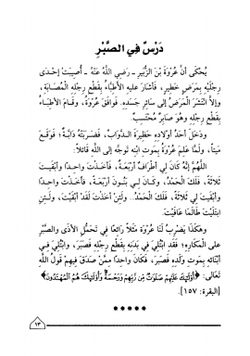 دَرْسٌ فِي الصَّبْرِ
يُحْكَى أَنَّ عُرْوَةَ بْنَ الزُّبَيْرِ - رَضِيَ اللَّهُ عَنْهُ - أُصِيبَتْ إِحْدَى
رِجْلَيْهِ بِمَرَضٍ خَطِيرٍ، فَأَشَارَ عَلَيْهِ الأَطِبَّاءُ بِقَطْعِ رِجْلِهِ الْمُصَابَةِ،
وَإِلَّا انْتَشَرَ الْمَرَضُ إِلَى سَائِرِ جَسَدِهِ. فَوَافَقَ عُرْوَةُ، وَقَامَ الأَطِبَّاءُ
بِقَطْعِ رِجْلِهِ وَهُوَ صَابِرٌ مُحْتَسِبٌ.
وَدَخَلَ أَحَدُ أَوْلَادِهِ حَظِيرَةَ الدَّوَابِّ، فَضَرَبَتْهُ دَابَّةٌ؛ فَوَقَعَ
مَيِّتاً، وَلَمَّا عَلِمَ عُرْوَةُ بِمَوْتِ ابْنِهِ تَوَجَّهَ إِلَى اللَّهِ قَائِلاً:
اللَّهُمَّ إِنَّهُ كَانَ لِي أَطْرَافٌ أَرْبَعَةٌ، فَأَخَذْتَ وَاحِداً وَأَبْقَيْتَ
ثَلَاثَةً، فَلَكَ الْحَمْدُ، وَكَانَ لِي بَنُونَ أَرْبَعَةٌ، فَأَخَذْتَ وَاحِداً
وَأَبْقَيْتَ ثَلَاثَةً، فَلَكَ الْحَمْدُ. لَئِنْ أَخَذْتَ لَقَدْ أَبْقَيْتَ، وَلَئِنِ
ابْتَلَيْتَ طَالَمَا عَافَيْتَ.
وَهَكَذَا يَضْرِبُ لَنَا عُرْوَةُ مَثَلاً رَائِعاً فِي تَحَمُّلِ الأَذَى وَالصَّبْرِ
عَلَى الْمَكَارِهِ؛ فَقَدِ ابْتُلِيَ فِي بَدَنِهِ بِقَطْعِ رِجْلِهِ فَصَبَرَ، وَابْتُلِيَ فِي
أَبْنَائِهِ بِمَوْتِ وَلَدِهِ فَصَبَرَ، وَكَانَ وَاحِداً مِمَّنْ صَدَقَ فِيهِمْ قَوْلُ اللَّهِ
تَعَالَى: ﴿أُوْلَٰئِكَ عَلَيْهِمْ صَلَوَاتٌ مِّن رَّبِّهِمْ وَرَحْمَةٌ وَأُوْلَٰئِكَ هُمُ الْمُهْتَدُونَ﴾
[البقرة: ١٥٧].
* * * * *
١٣